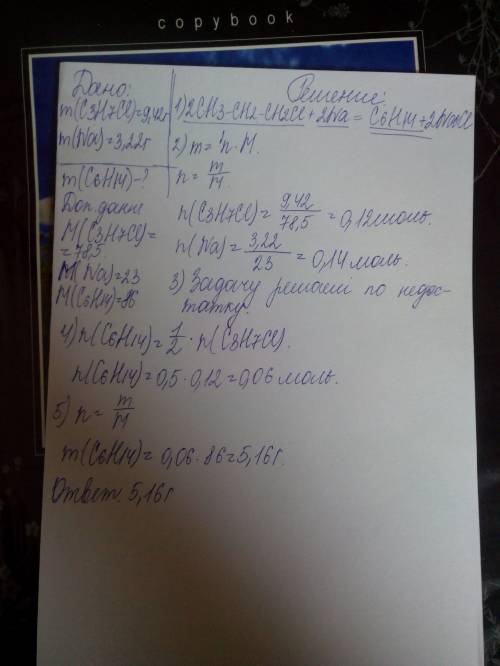 copybook
Дано:
m(C3H7Cl)=9,42г
m(Na)=3,22г
m(C6H14)-?
Доп. данные
M(C3H7Cl)=
=78,5.
M(Na)=23
M(C6H14)=86
Решение:
1) 2CH3-CH2-CH2Cl+2Na= C6H14+2NaCl
2) m= n·M.
n= m/M.
n(C3H7Cl)= 9,42/78,5 =0,12моль.
n(Na)= 3,22/23 =0,14моль.
3) Задачу решаем по недос-
татку.
4) n(C6H14)= 1/2 · n(C3H7Cl).
n(C6H14)=0,5·0,12=0,06моль.
5) n= m/M
m(C6H14)=0,06·86=5,16г.
Ответ: 5,16г